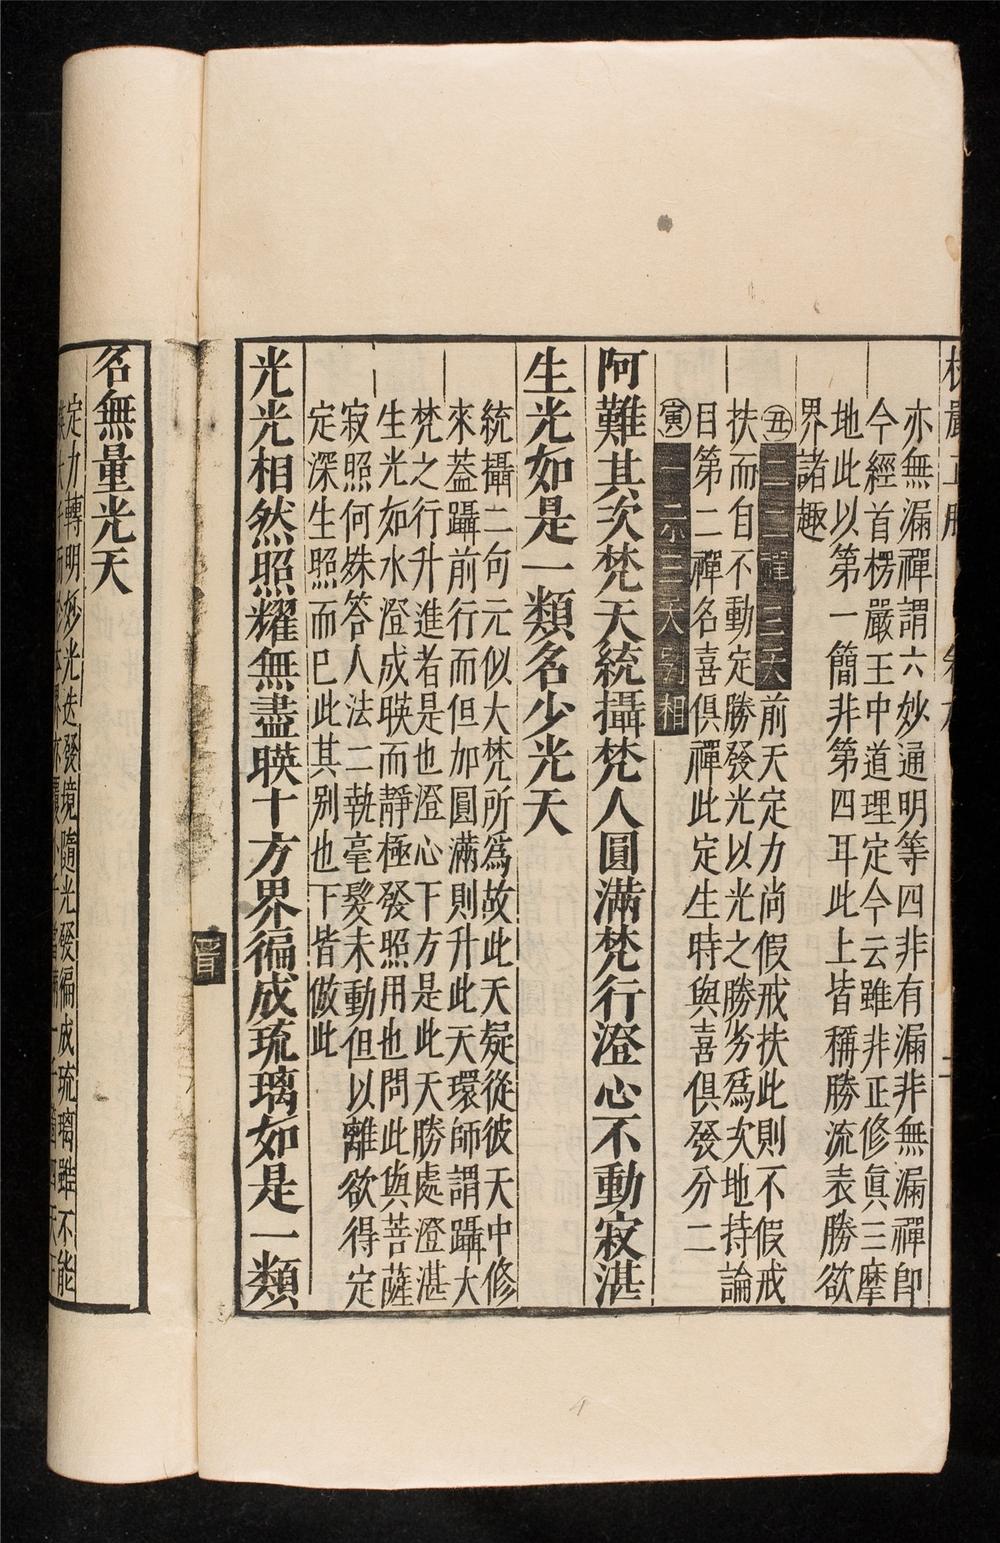 亦無漏禪謂六妙通明等四非有漏非無漏禪即
今經首楞嚴王中道理定今云雖非正修眞三摩
地此以第一簡非第四耳此上皆稱勝流表勝欲
界諸趣
丑二二禪三天前天定力尚假戒扶此則不假戒
扶而自不動定勝發光以光之勝劣爲次地持論
目第二禪名喜俱禪此定生時與喜俱發分二
寅一示三天別相
阿難其次梵天統攝梵人圓滿梵行澄心不動寂湛
生光如是一類名少光天
統攝二句元似大梵所爲故此天疑從彼天中修
來葢躡前行而但加圓滿則升此天環師謂躡大
梵之行升進者是也澄心下方是此天勝處澄湛
生光如水澄成暎而靜極發照用也問此與菩薩
寂照何殊答人法二執毫髮未動但以離欲得定
定深生照而已此其別也下皆倣此
光光相然照耀無盡暎十方界徧成琉璃如是一類
名無量光天
定力轉明妙光迭發境隨光發徧成琉璃雖不能